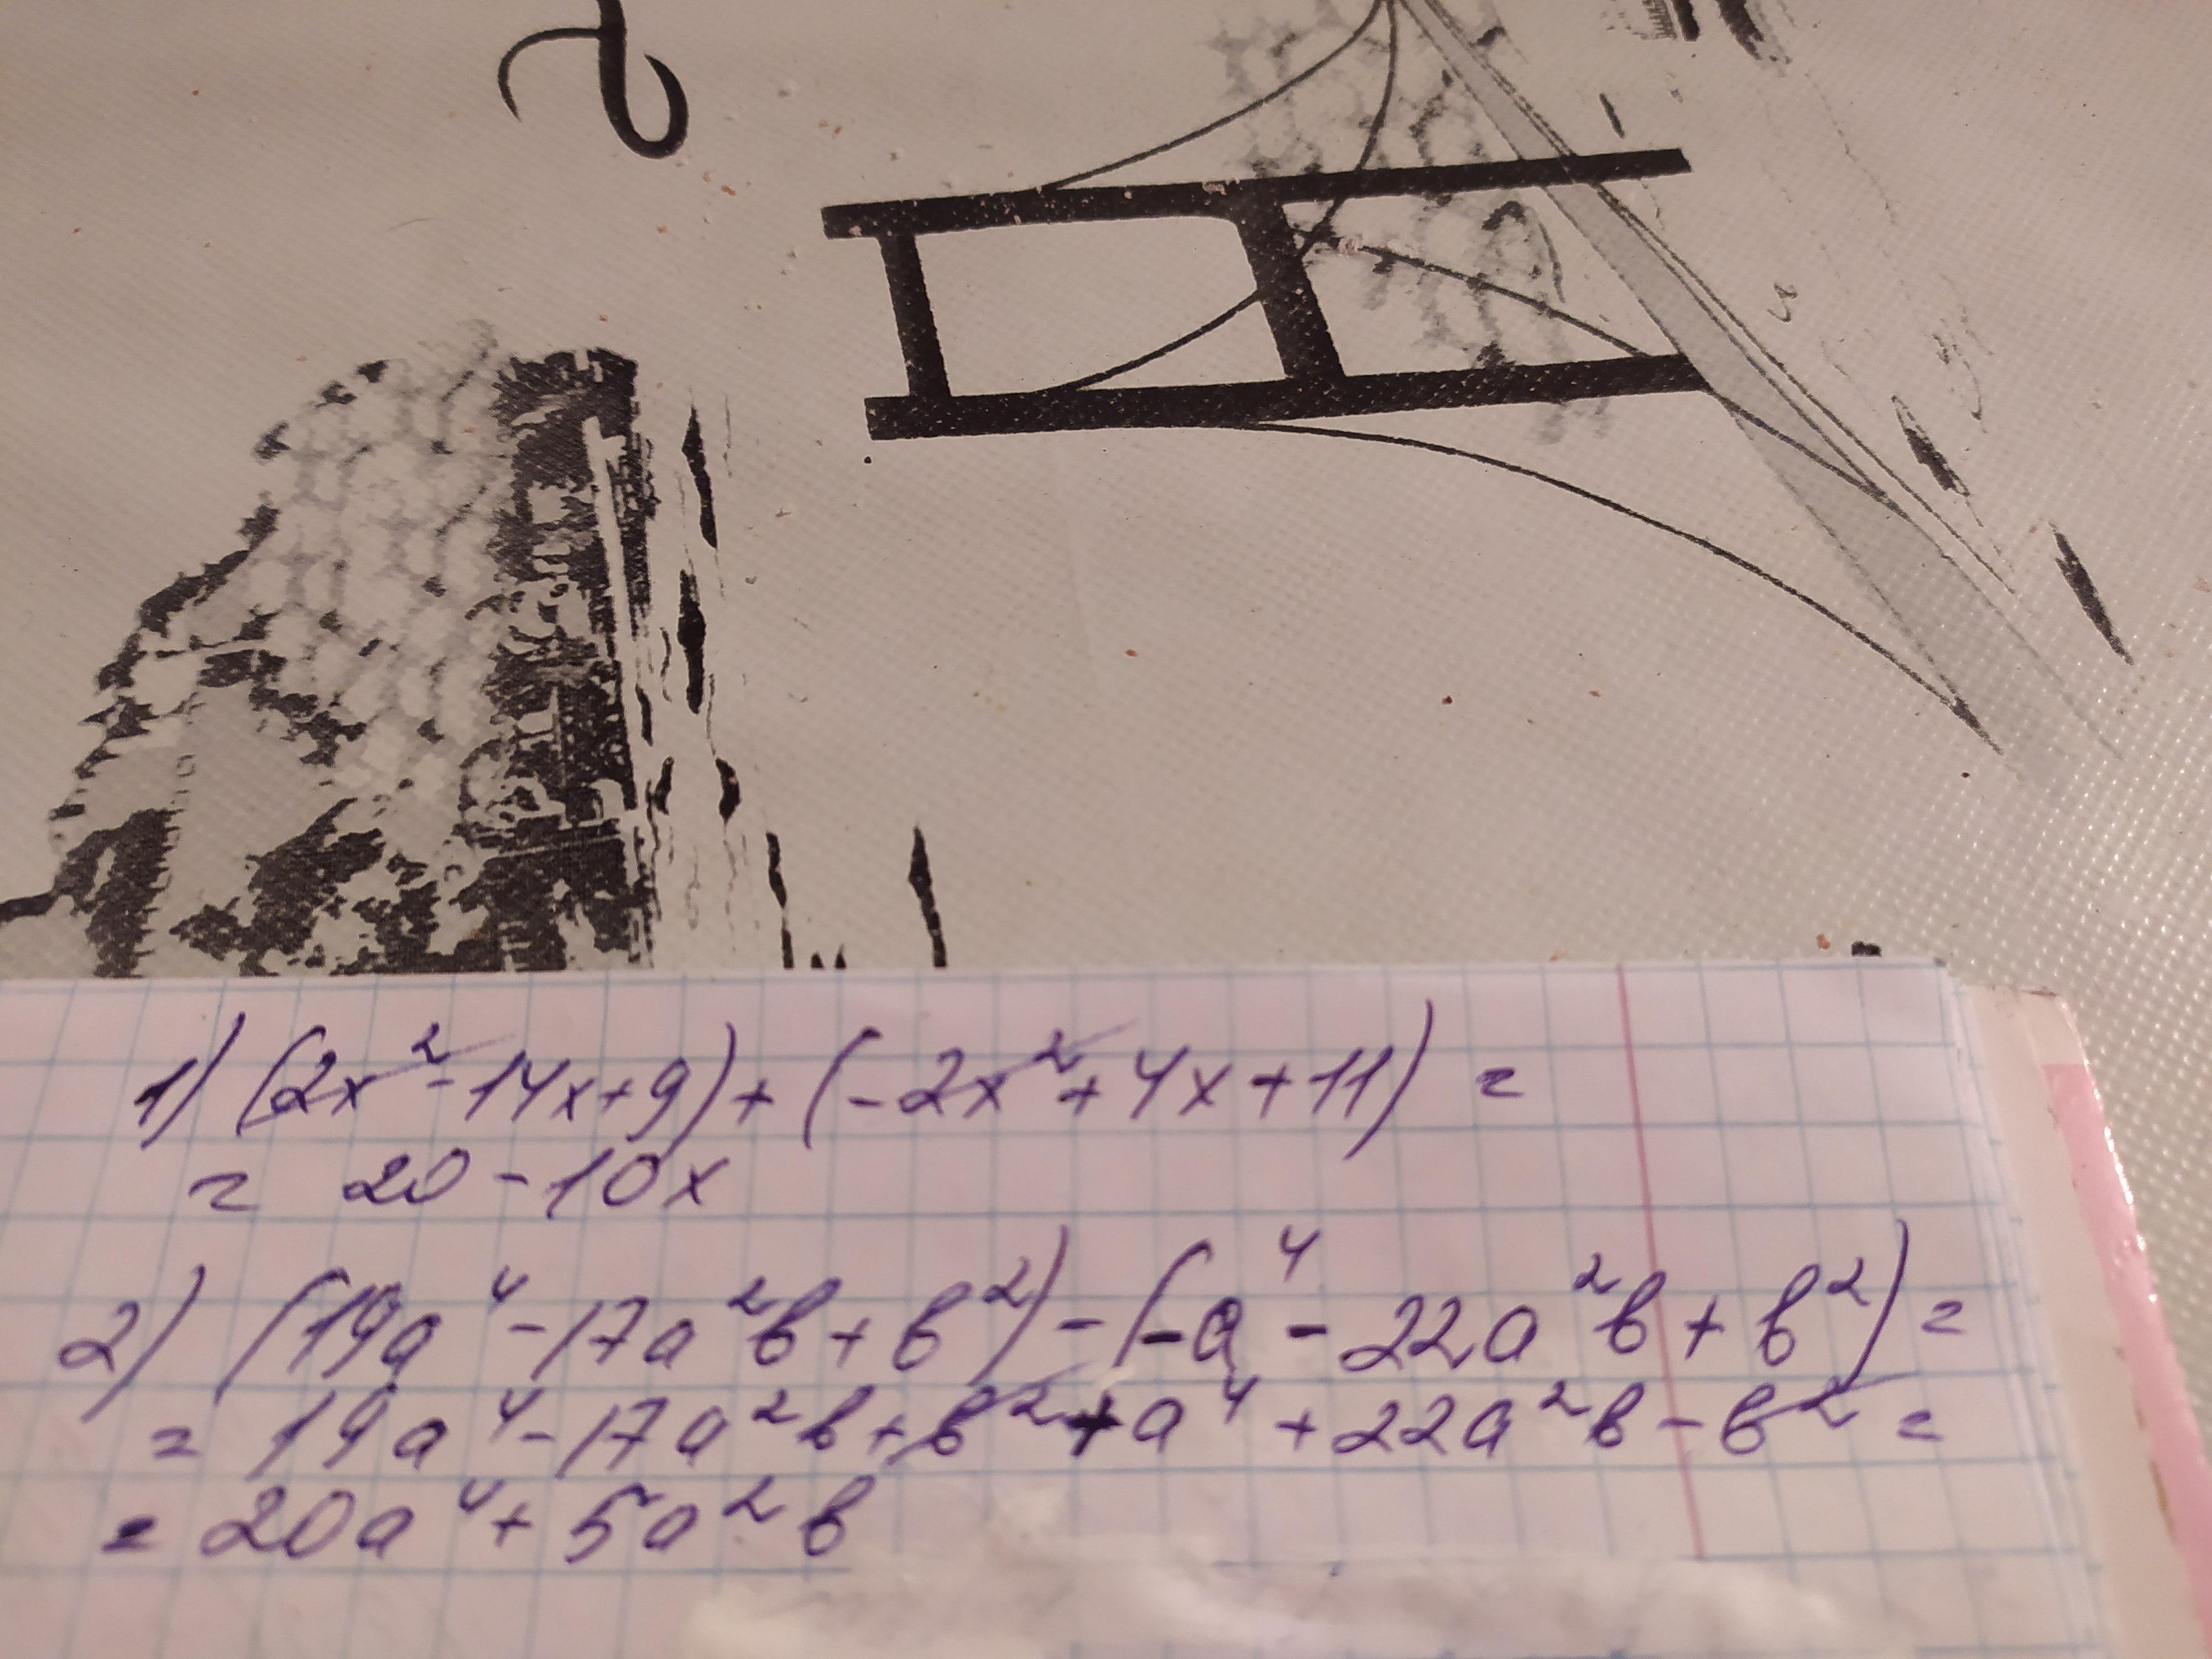 1) (2x² - 14x + 9) + (-2x² + 4x + 11) =
= 20 - 10x
2) (19a⁴ - 17a²b + b²) - (-a⁴ - 22a²b + b²) =
= 19a⁴ - 17a²b + b² + a⁴ + 22a²b - b² =
= 20a⁴ + 5a²b